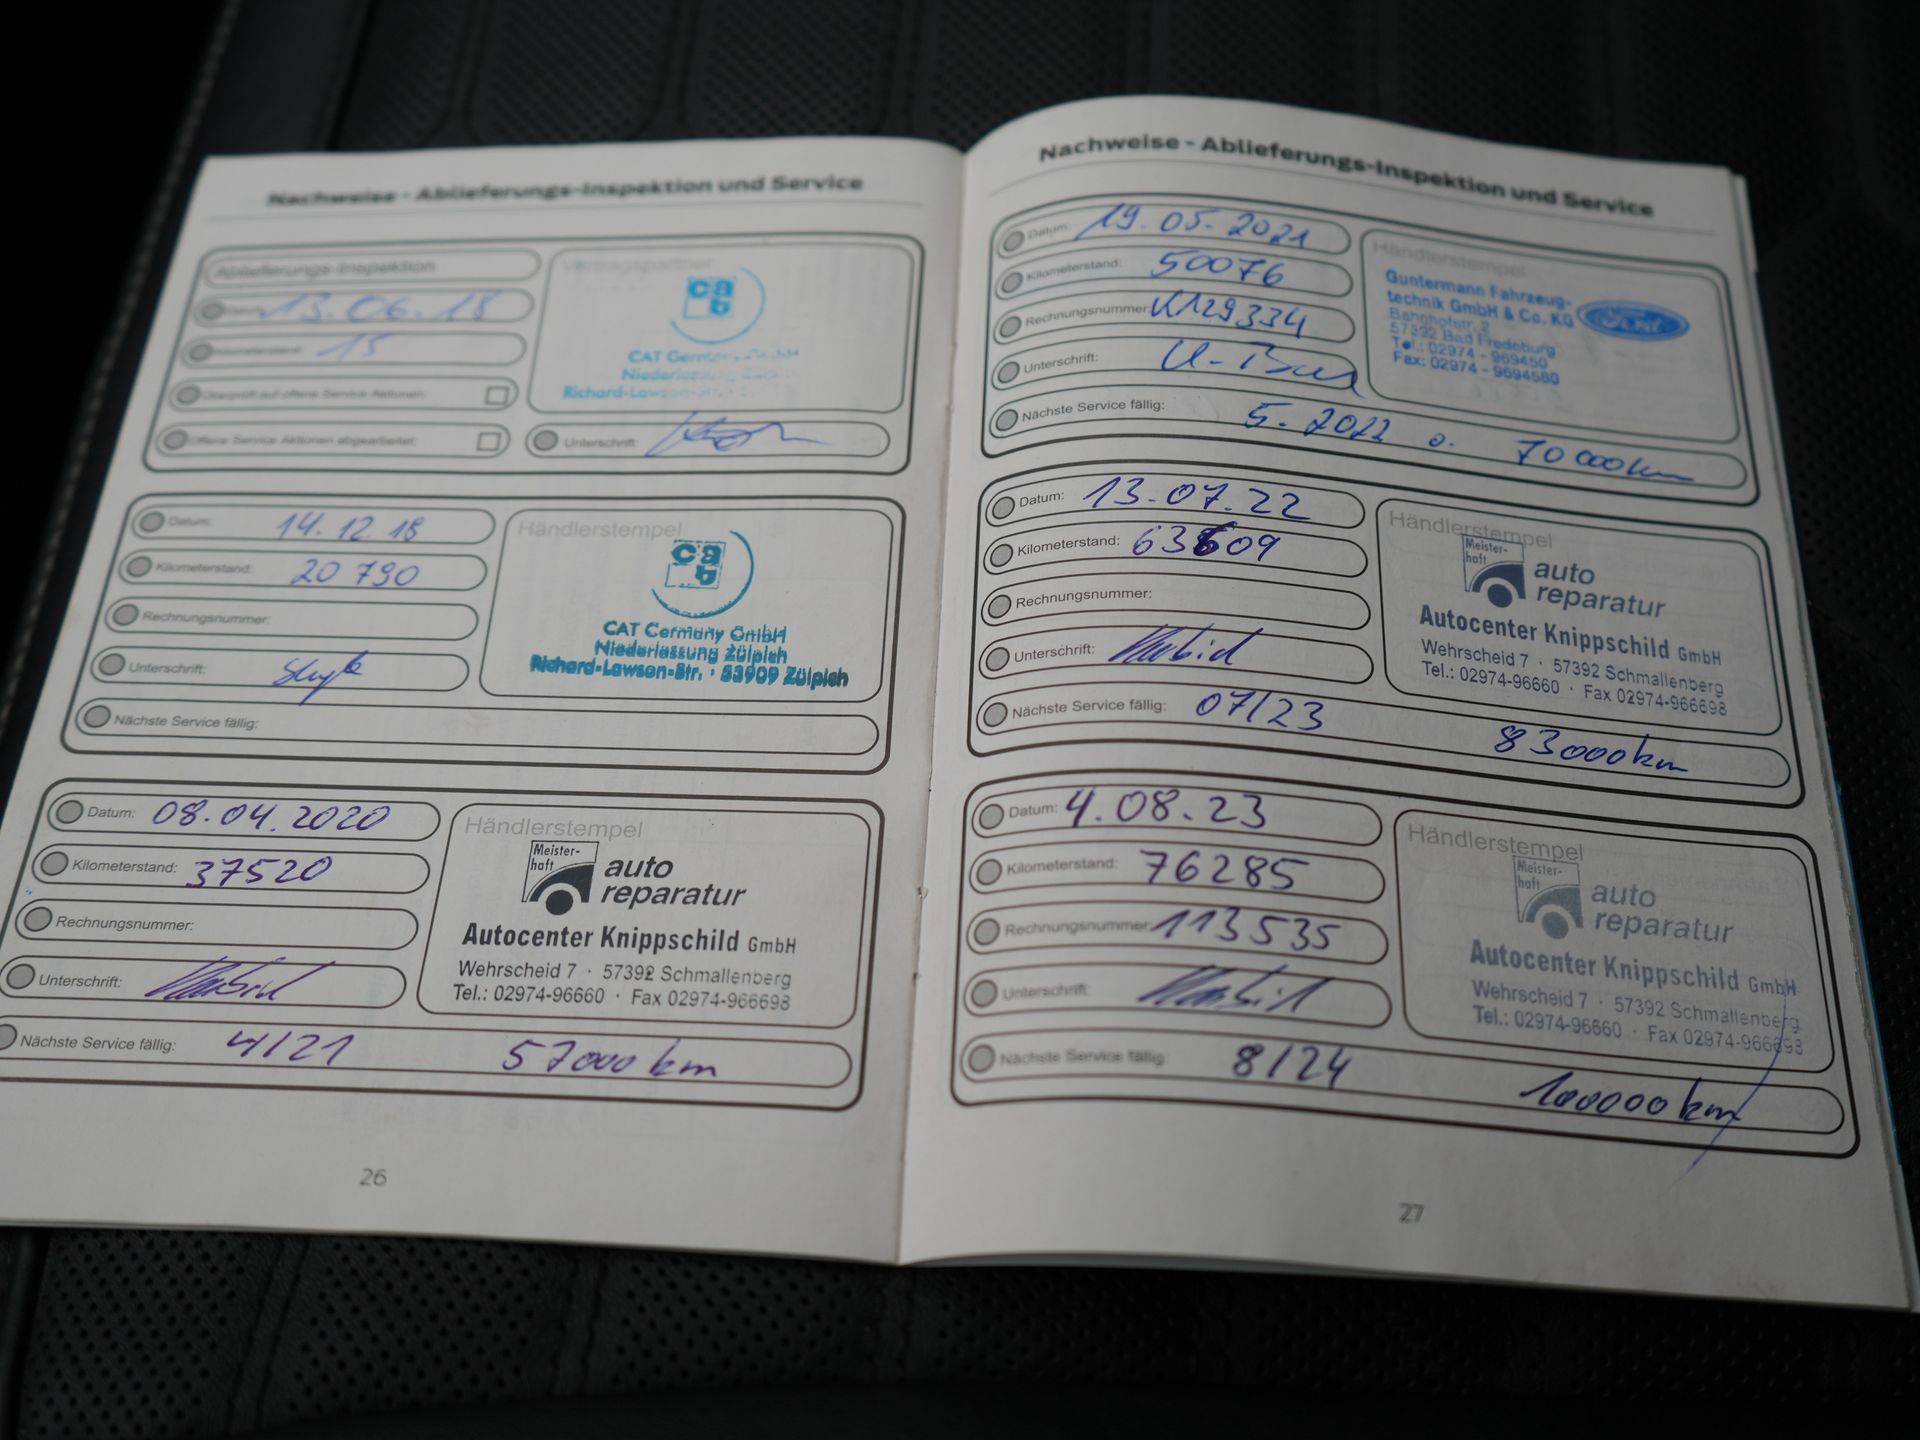 Nachweise - Ablieferungs-Inspektion und Service
Ablieferungs-Inspektion
Datum: 13.06.18
Kilometerstand: 15
Überprüft auf offene Service Aktionen:
Offene Service Aktionen abgearbeitet:
Vertragspartner
cab
CAT Germany GmbH
Niederlassung Zülpich
Richard-Lawson-Str.
Unterschrift:
Datum: 14.12.18
Kilometerstand: 20 790
Rechnungsnummer:
Unterschrift:
Nächste Service fällig:
Händlerstempel
cab
CAT Germany GmbH
Niederlassung Zülpich
Richard-Lawson-Str. · 53909 Zülpich
Datum: 08.04.2020
Kilometerstand: 37520
Rechnungsnummer:
Unterschrift:
Nächste Service fällig: 4/21 57000 km
Händlerstempel
Meister-
haft
auto
reparatur
Autocenter Knippschild GmbH
Wehrscheid 7 · 57392 Schmallenberg
Tel.: 02974-96660 · Fax 02974-966698
26
Nachweise - Ablieferungs-Inspektion und Service
Datum: 19.05.2021
Kilometerstand: 50076
Rechnungsnummer:
Unterschrift:
Nächste Service fällig: 5.2022 o. 70000km
Händlerstempel
Guntermann Fahrzeug-
technik GmbH & Co. KG
Bahnhofstr. 2
57392 Bad Fredeburg
Tel.: 02974 - 969450
Fax: 02974 - 9694580
Ford
Datum: 13.07.22
Kilometerstand: 63609
Rechnungsnummer:
Unterschrift:
Nächste Service fällig: 07/23 83000km
Händlerstempel
Meister-
haft
auto
reparatur
Autocenter Knippschild GmbH
Wehrscheid 7 · 57392 Schmallenberg
Tel.: 02974-96660 · Fax 02974-966698
Datum: 4.08.23
Kilometerstand: 76285
Rechnungsnummer: 113535
Unterschrift:
Nächste Service fällig: 8/24 100000 km
Händlerstempel
Meister-
haft
auto
reparatur
Autocenter Knippschild GmbH
Wehrscheid 7 · 57392 Schmallenberg
Tel.: 02974-96660 · Fax 02974-966698
27